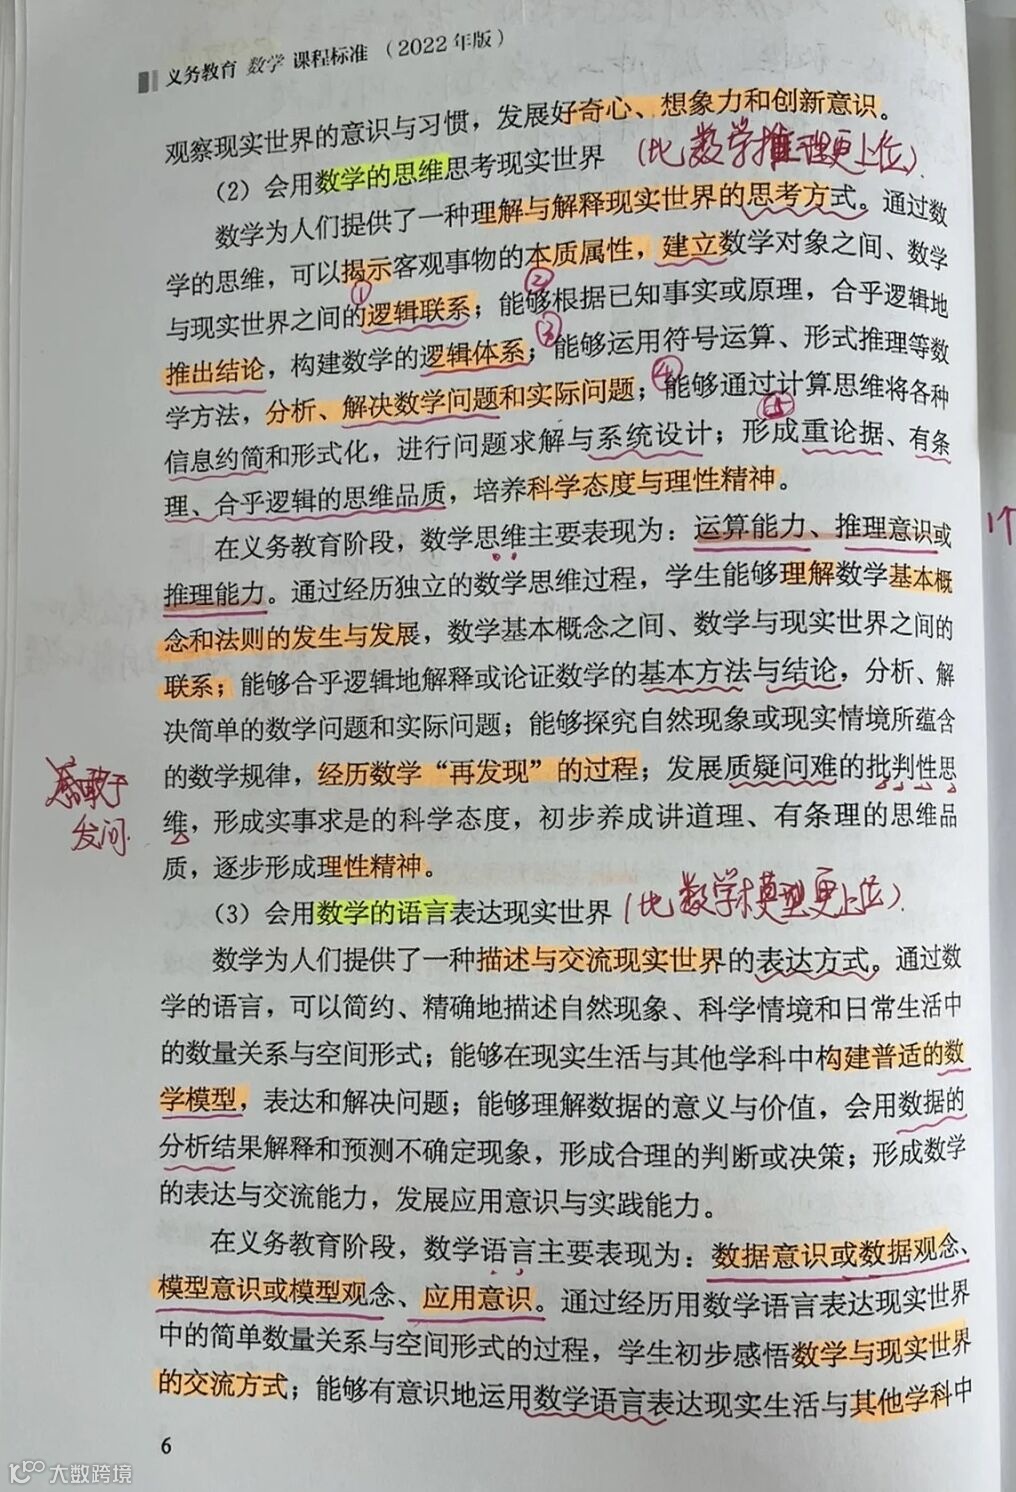 义务教育 数学 课程标准（2022年版）
观察现实世界的意识与习惯，发展好奇心、想象力和创新意识。
（2）会用数学的思维思考现实世界 （比数学推理更上位）
数学为人们提供了一种理解与解释现实世界的思考方式。通过数
学的思维，可以揭示客观事物的本质属性，建立数学对象之间、数学
① ②
与现实世界之间的逻辑联系；能够根据已知事实或原理，合乎逻辑地
③
推出结论，构建数学的逻辑体系；能够运用符号运算、形式推理等数
④
学方法，分析、解决数学问题和实际问题；能够通过计算思维将各种
⑤
信息约简和形式化，进行问题求解与系统设计；形成重论据、有条
理、合乎逻辑的思维品质，培养科学态度与理性精神。
在义务教育阶段，数学思维主要表现为：运算能力、推理意识或
推理能力。通过经历独立的数学思维过程，学生能够理解数学基本概
念和法则的发生与发展，数学基本概念之间、数学与现实世界之间的
联系；能够合乎逻辑地解释或论证数学的基本方法与结论，分析、解
决简单的数学问题和实际问题；能够探究自然现象或现实情境所蕴含
的数学规律，经历数学“再发现”的过程；发展质疑问难的批判性思
敢于
发问.
维，形成实事求是的科学态度，初步养成讲道理、有条理的思维品
质，逐步形成理性精神。
（3）会用数学的语言表达现实世界 （比数学模型更上位）
数学为人们提供了一种描述与交流现实世界的表达方式。通过数
学的语言，可以简约、精确地描述自然现象、科学情境和日常生活中
的数量关系与空间形式；能够在现实生活与其他学科中构建普适的数
学模型，表达和解决问题；能够理解数据的意义与价值，会用数据的
分析结果解释和预测不确定现象，形成合理的判断或决策；形成数学
的表达与交流能力，发展应用意识与实践能力。
在义务教育阶段，数学语言主要表现为：数据意识或数据观念、
模型意识或模型观念、应用意识。通过经历用数学语言表达现实世界
中的简单数量关系与空间形式的过程，学生初步感悟数学与现实世界
的交流方式；能够有意识地运用数学语言表达现实生活与其他学科中
6
大数跨境